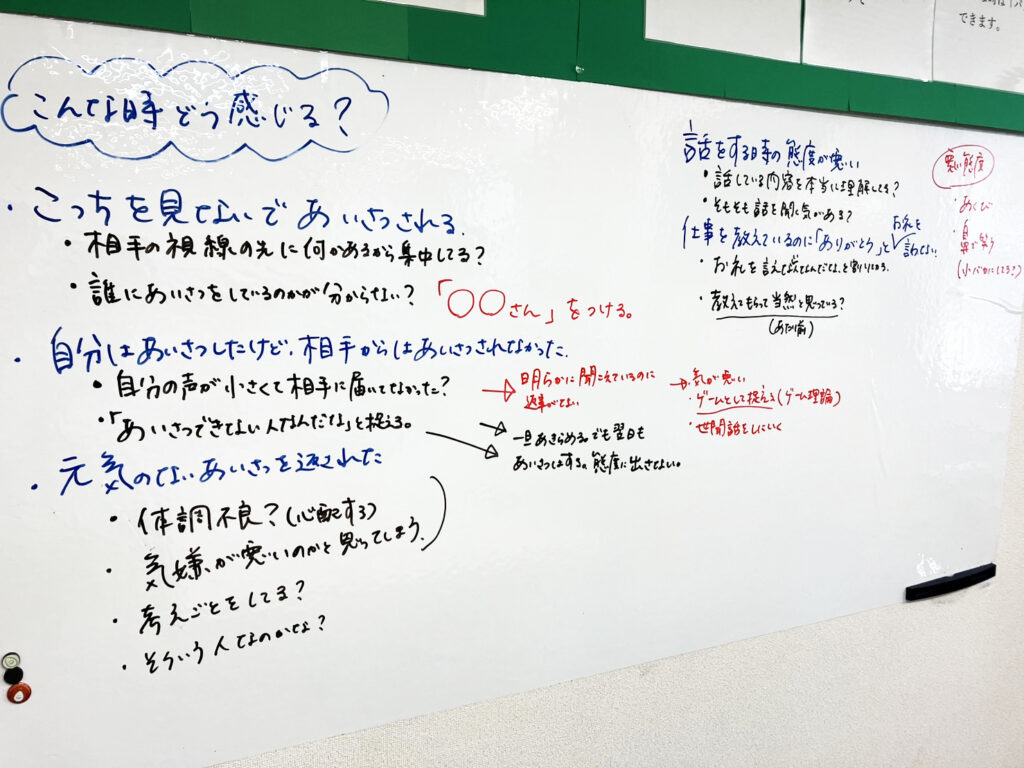 こんな時どう感じる?
・こっちを見ないであいさつされる。
・相手の視線の先に何かあるから集中してる?
・誰にあいさつをしているのかが分からない?
「〇〇さん」をつける。
・自分はあいさつしたけど、相手からはあいさつされなかった。
・自分の声が小さくて相手に届いてなかった?
→明らかに聞こえているのに
返事がない
→・気が悪い
・ゲームとして捉える(ゲーム理論)
・世間話をしにいく
・「あいさつできない人なんだな」と捉える。
→一旦あきらめる。でも翌日も
→あいさつはする。態度に出さない。
・元気のないあいさつを返された
・体調不良?(心配する)
・気嫌が悪いのかと思ってしまう。
・考えごとをしてる?
・そういう人なのかな?
話をする時の態度が悪い
・話している内容を本当に理解してる?
・そもそも話を聞く気がある?
仕事を教えているのに「ありがとう」とお礼を言わない
・お礼を言えない人なんだな、と割りきる。
・教えてもらって当然と思っている?
(あたり前)
悪い態度
・あくび
・鼻で笑う
(小バカにしてる?)
できます。